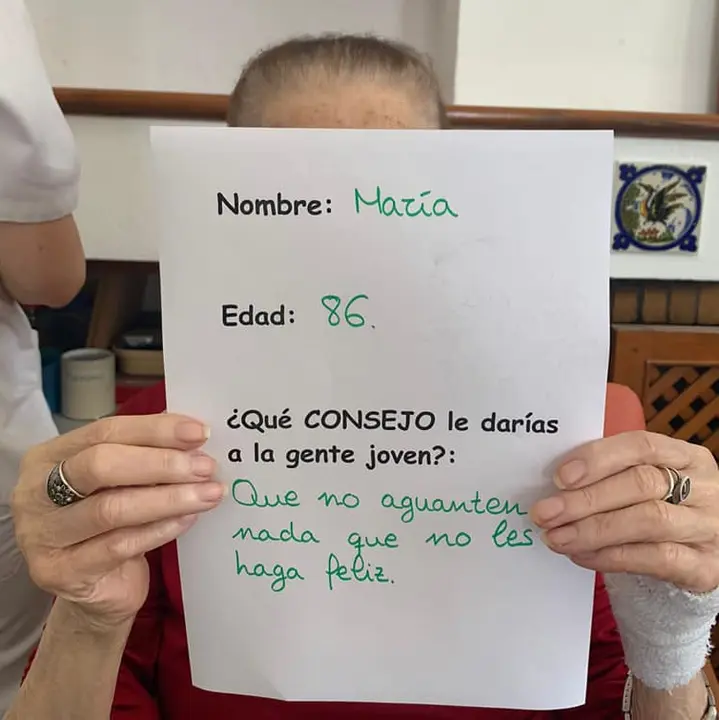 Nombre: María
Edad: 86.
¿Qué CONSEJO le darías
a la gente joven?:
Que no aguanten
nada que no les
haga feliz.